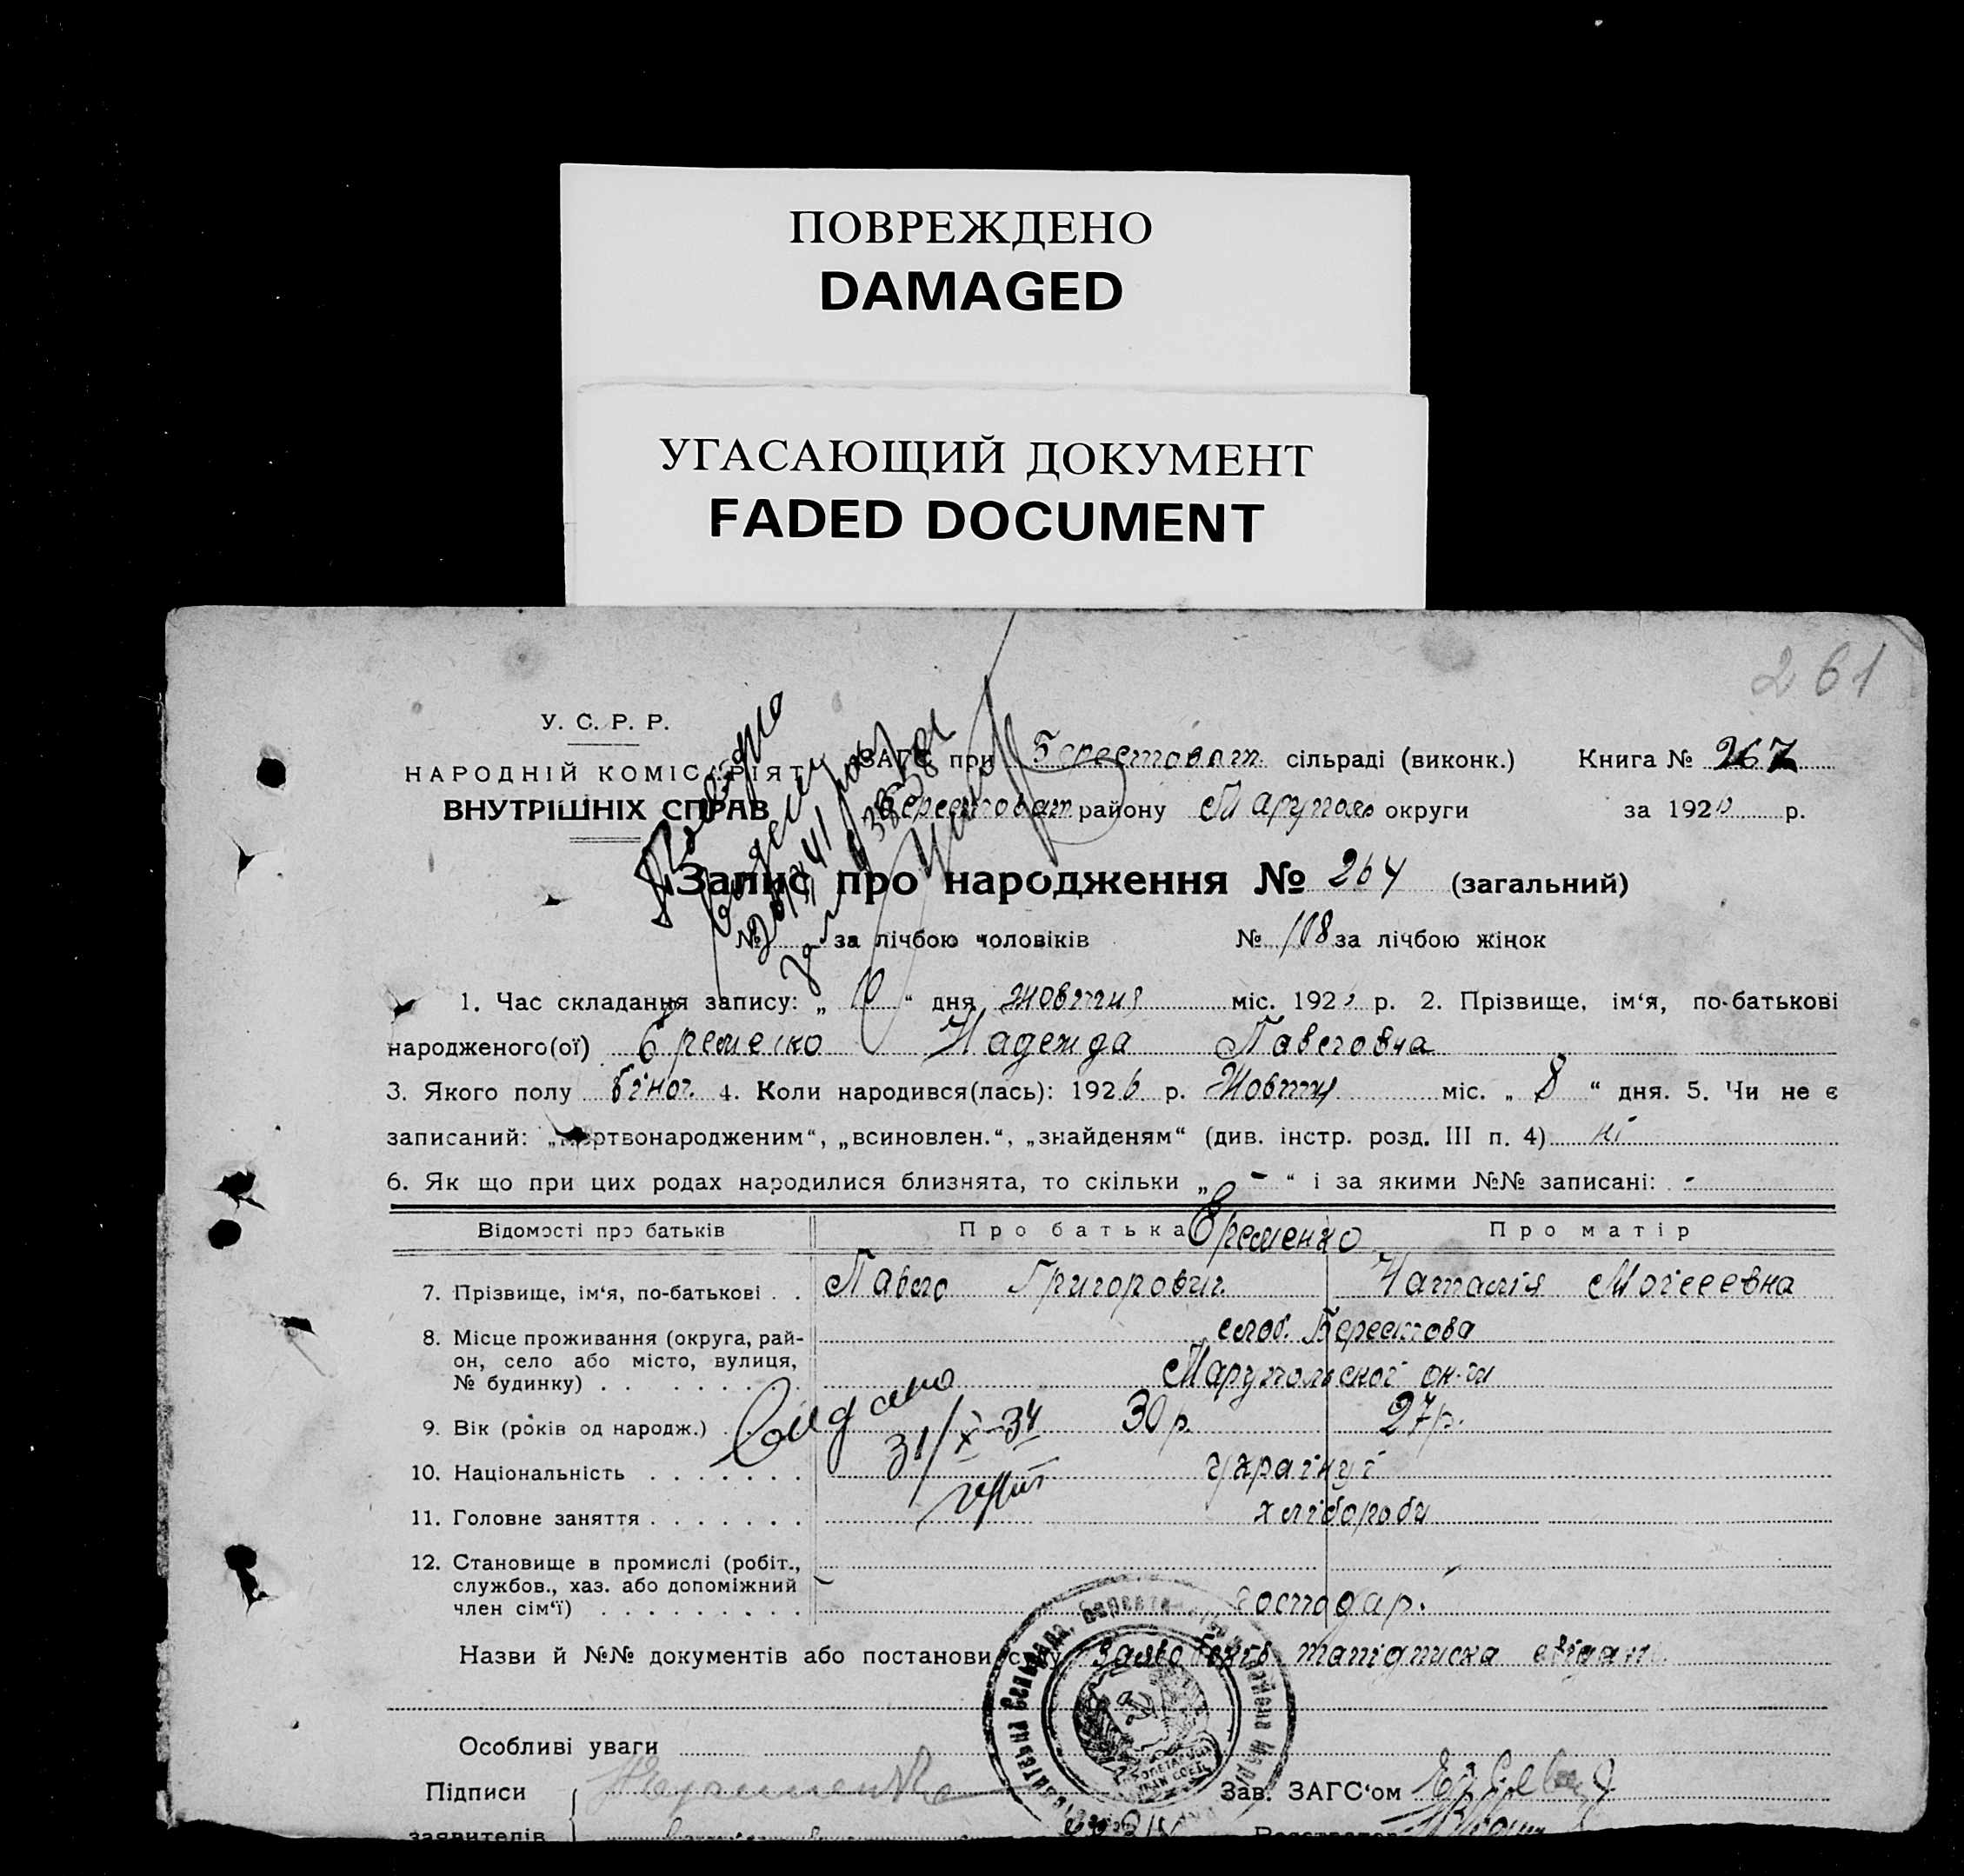 ПОВРЕЖДЕНО
DAMAGED
УГАСАЮЩИЙ ДОКУМЕНТ
FADED DOCUMENT
261
У. С. Р. Р.
НАРОДНІЙ КОМІСАРІЯТ
ВНУТРІШНІХ СПРАВ
ЗАГС при Берестоват. сільраді (виконк.) Книга № 267
Берестоват району Маруполь округи за 1926 р.
Запис про народження № 264 (загальний)
№ за лічбою чоловіків № 108 за лічбою жінок
1. Час складання запису: „ 10 “ дня жовтня міс. 192 р. 2. Прізвище, ім‘я, по-батькові
народженого(ої) Єременко Надежда Павловна
3. Якого полу жіноч. 4. Коли народився(лась): 1926 р. Жовтня міс. „ 8 “ дня. 5. Чи не є
записаний: „мертвонародженим“, „всиновлен.“, „знайденям“ (див. інстр. розд. III п. 4) ні
6. Як що при цих родах народилися близнята, то скільки „ - “ і за якими №№ записані: -
Відомості про батьків Про батька Єременко Про матір
7. Прізвище, ім‘я, по-батькові . . Павло Григорович Наталія Мойсеевна
8. Місце проживання (округа, рай-
он, село або місто, вулиця,
№ будинку) . . . . . . . .
слоб. Берестова
Марупольської ок-ги
9. Вік (років од народж.) . . . . 30 р. 27 р.
видано
31/X-34
10. Національність . . . . . . . українці
11. Головне заняття . . . . . . . хлібороби
12. Становище в промислі (робіт.,
службов., хаз. або допоміжний
член сім‘ї) . . . . . . . . .
господар.
Назви й №№ документів або постанови суду Заява батьк. та підписка свідків
Особливі уваги
Підписи
заявителів
Зав. ЗАГС‘ом